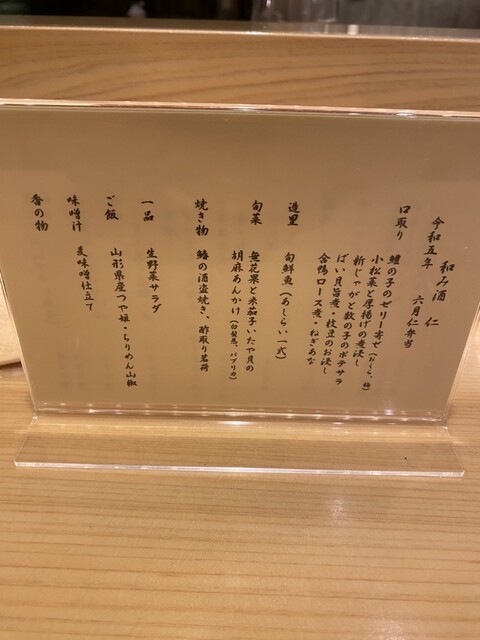 和み酒 仁
令和五年 六月仁弁当
口取り
鱧の子のゼリー寄せ(おくら、梅)
小松菜と厚揚げの煮浸し
新じゃがと数の子のポテサラ
ばい貝旨煮・枝豆のお浸し
合鴨ロース煮・ねぎぬた
造里
旬鮮魚(あしらい一式)
旬菜
無花果と米茄子いたや貝の
胡麻あんかけ、(白髪葱、パプリカ)
焼き物
鰆の酒盗焼き、酢取り茗荷
一品
生野菜サラダ
ご飯
山形県産つや姫・ちりめん山椒
味噌汁
麦味噌仕立て
香の物